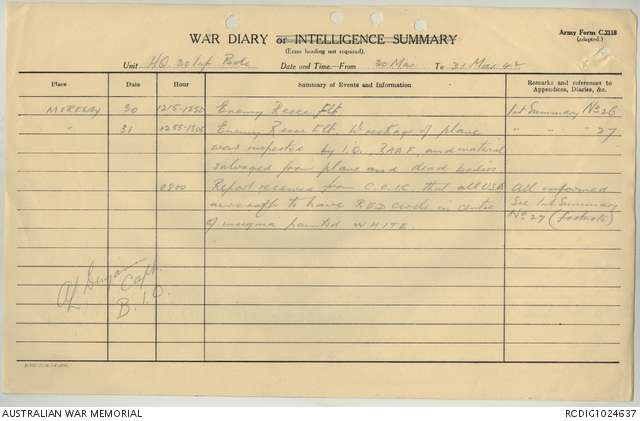 WAR DIARY or INTELLIGENCE SUMMARY
(Erase heading not required).
Army Form C.2118
(adapted.)
Unit HQ 30 Inf Bde Date and Time.—From 30 Mar To 31 Mar 42
Place Date Hour Summary of Events and Information Remarks and references to Appendices, Diaries, &c.
MORESBY 30 1215-1250 Enemy Recce Flt. Int Summary No 26
" 31 1255-1305 Enemy Recce Flt. Wreckage of plane " " " 27
was inspected by I.O. RAAF, and material
salvaged from plane and dead bodies
0800 Report received from C.O.I.C. that all USA All informed
aircraft to have RED circle in centre See Int Summary
of insignia painted WHITE. No 27 (footnote)
Capt.
B.I.O.
AUSTRALIAN WAR MEMORIAL
RCDIG1024637